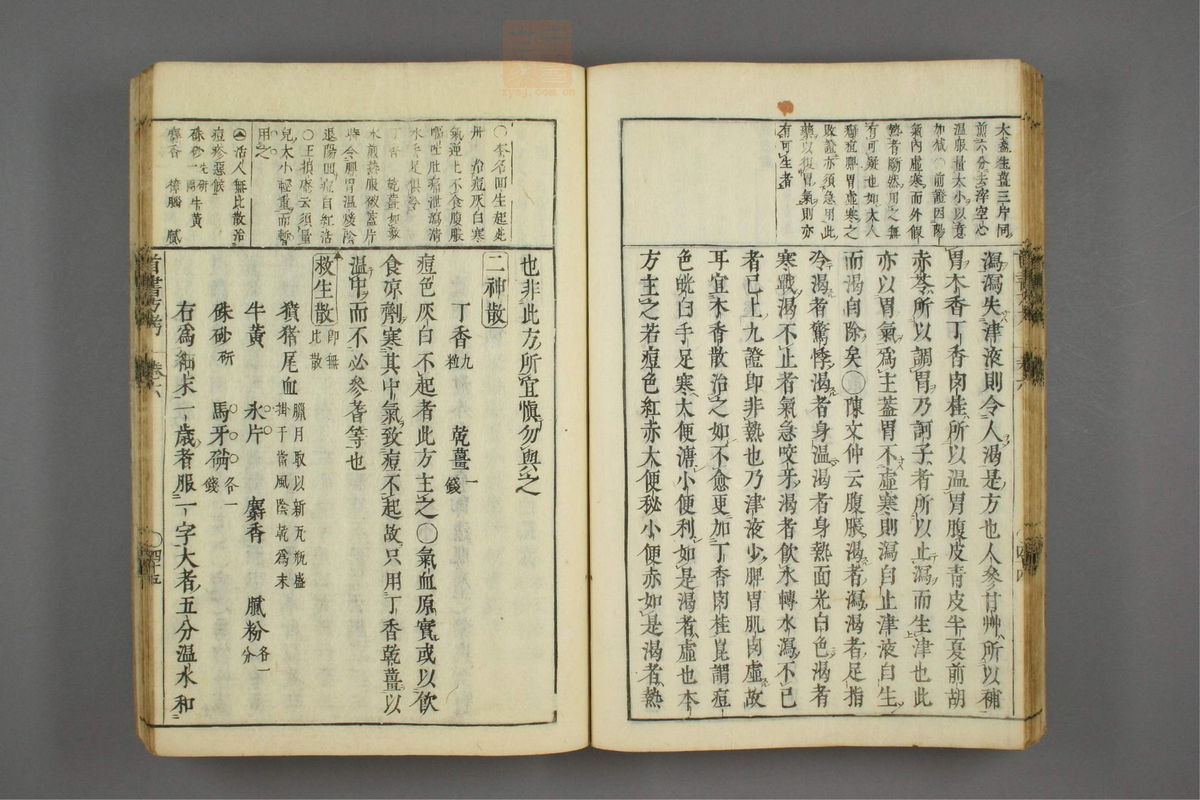 大棗生薑三片同
前六分去滓空心
溫服量大小以意
加減○前證因陽
氣內虛寒而外假
熱者斷然用之無
有可疑也如大人
痘疹脾胃虛寒之
敗證亦須急用此
藥以復胃氣則亦
有可生者
瀉瀉失津液則令人渴是方也人參甘艸所以補
胃木香丁香肉桂所以溫胃腹皮青皮半夏前胡
赤苓所以調胃乃訶子者所以止瀉而生津也此
亦以胃氣爲主蓋胃不虛寒則瀉自止津液自生
而渴自除矣○陳文仲云腹脹渴者瀉渴者足指
冷渴者驚悸渴者身溫渴者身熱面光白色渴者
寒戰渴不止者氣急咬牙渴者飲水轉水瀉不已
者已上九證即非熱也乃津液少脾胃肌肉虛故
耳宜木香散治之如不愈更加丁香肉桂崑謂痘
色皝白手足寒大便溏小便利如是渴者虛也本
方主之若痘色紅赤大便秘小便赤如是渴者熱
○本名回生起死
丹 治痘灰白寒
氣逆上不食腹脹
嘔吐肚痛泄瀉清
水手足俱冷
丁香 乾薑如數
水煎熱服被蓋片
時令脾胃溫煖陰
退陽回痘自紅活
○王損庵云須量
兒大小輕重而暫
用之
活人無比散治
痘疹惡候
硃砂一兩研 牛黃
麝香 樟腦 膩
也非此方所宜愼勿與之
二神散
丁香九粒 乾薑一錢
痘色灰白不起者此方主之○氣血原實或以飲
食凉劑寒其中氣致痘不起故只用丁香乾薑以
溫中而不必參耆等也
救生散即無比散
獖猪尾血臘月取以新瓦瓶盛掛于當風陰乾爲末
牛黃 氷片 麝香 膩粉各一分
硃砂研 馬牙硝各一錢
右爲細末一歲者服一字大者五分温水和
首書方考 卷六 ○四十五